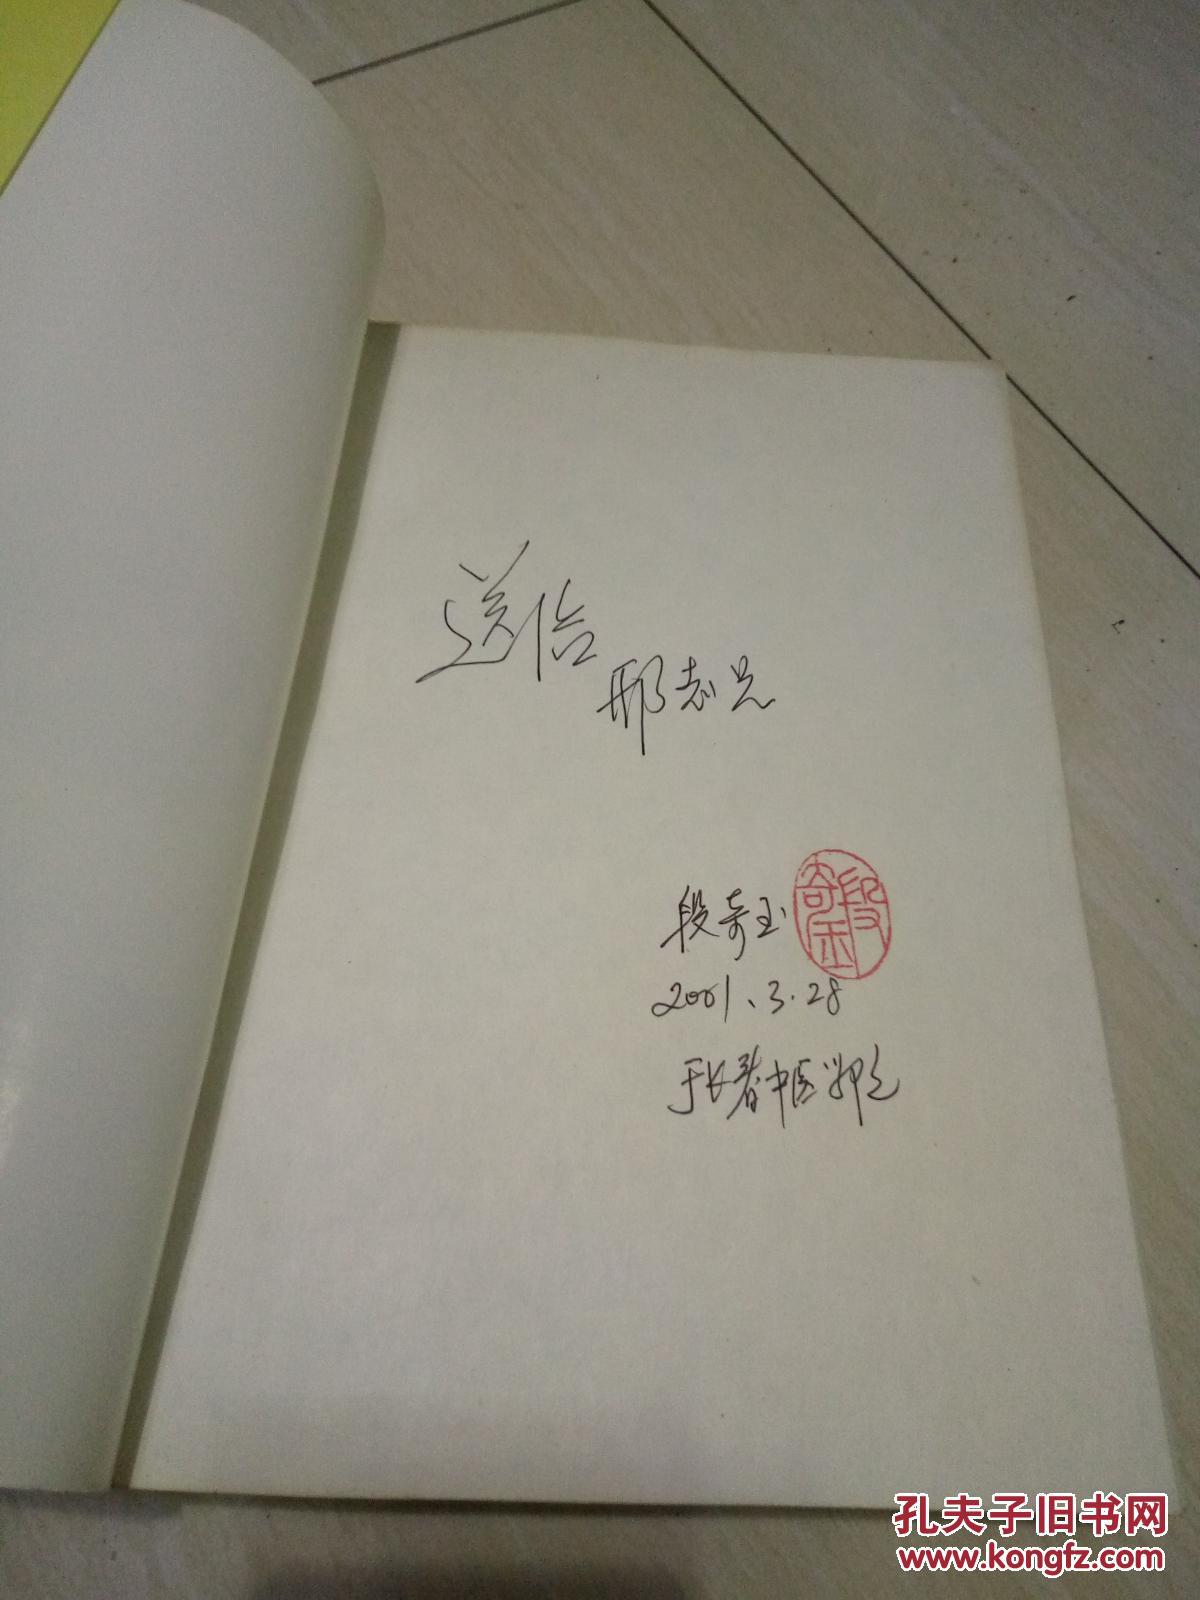 送给
邢志兄
段奇玉
段奇玉
2001.3.28
于长春中医学院
孔夫子旧书网
www.kongfz.com